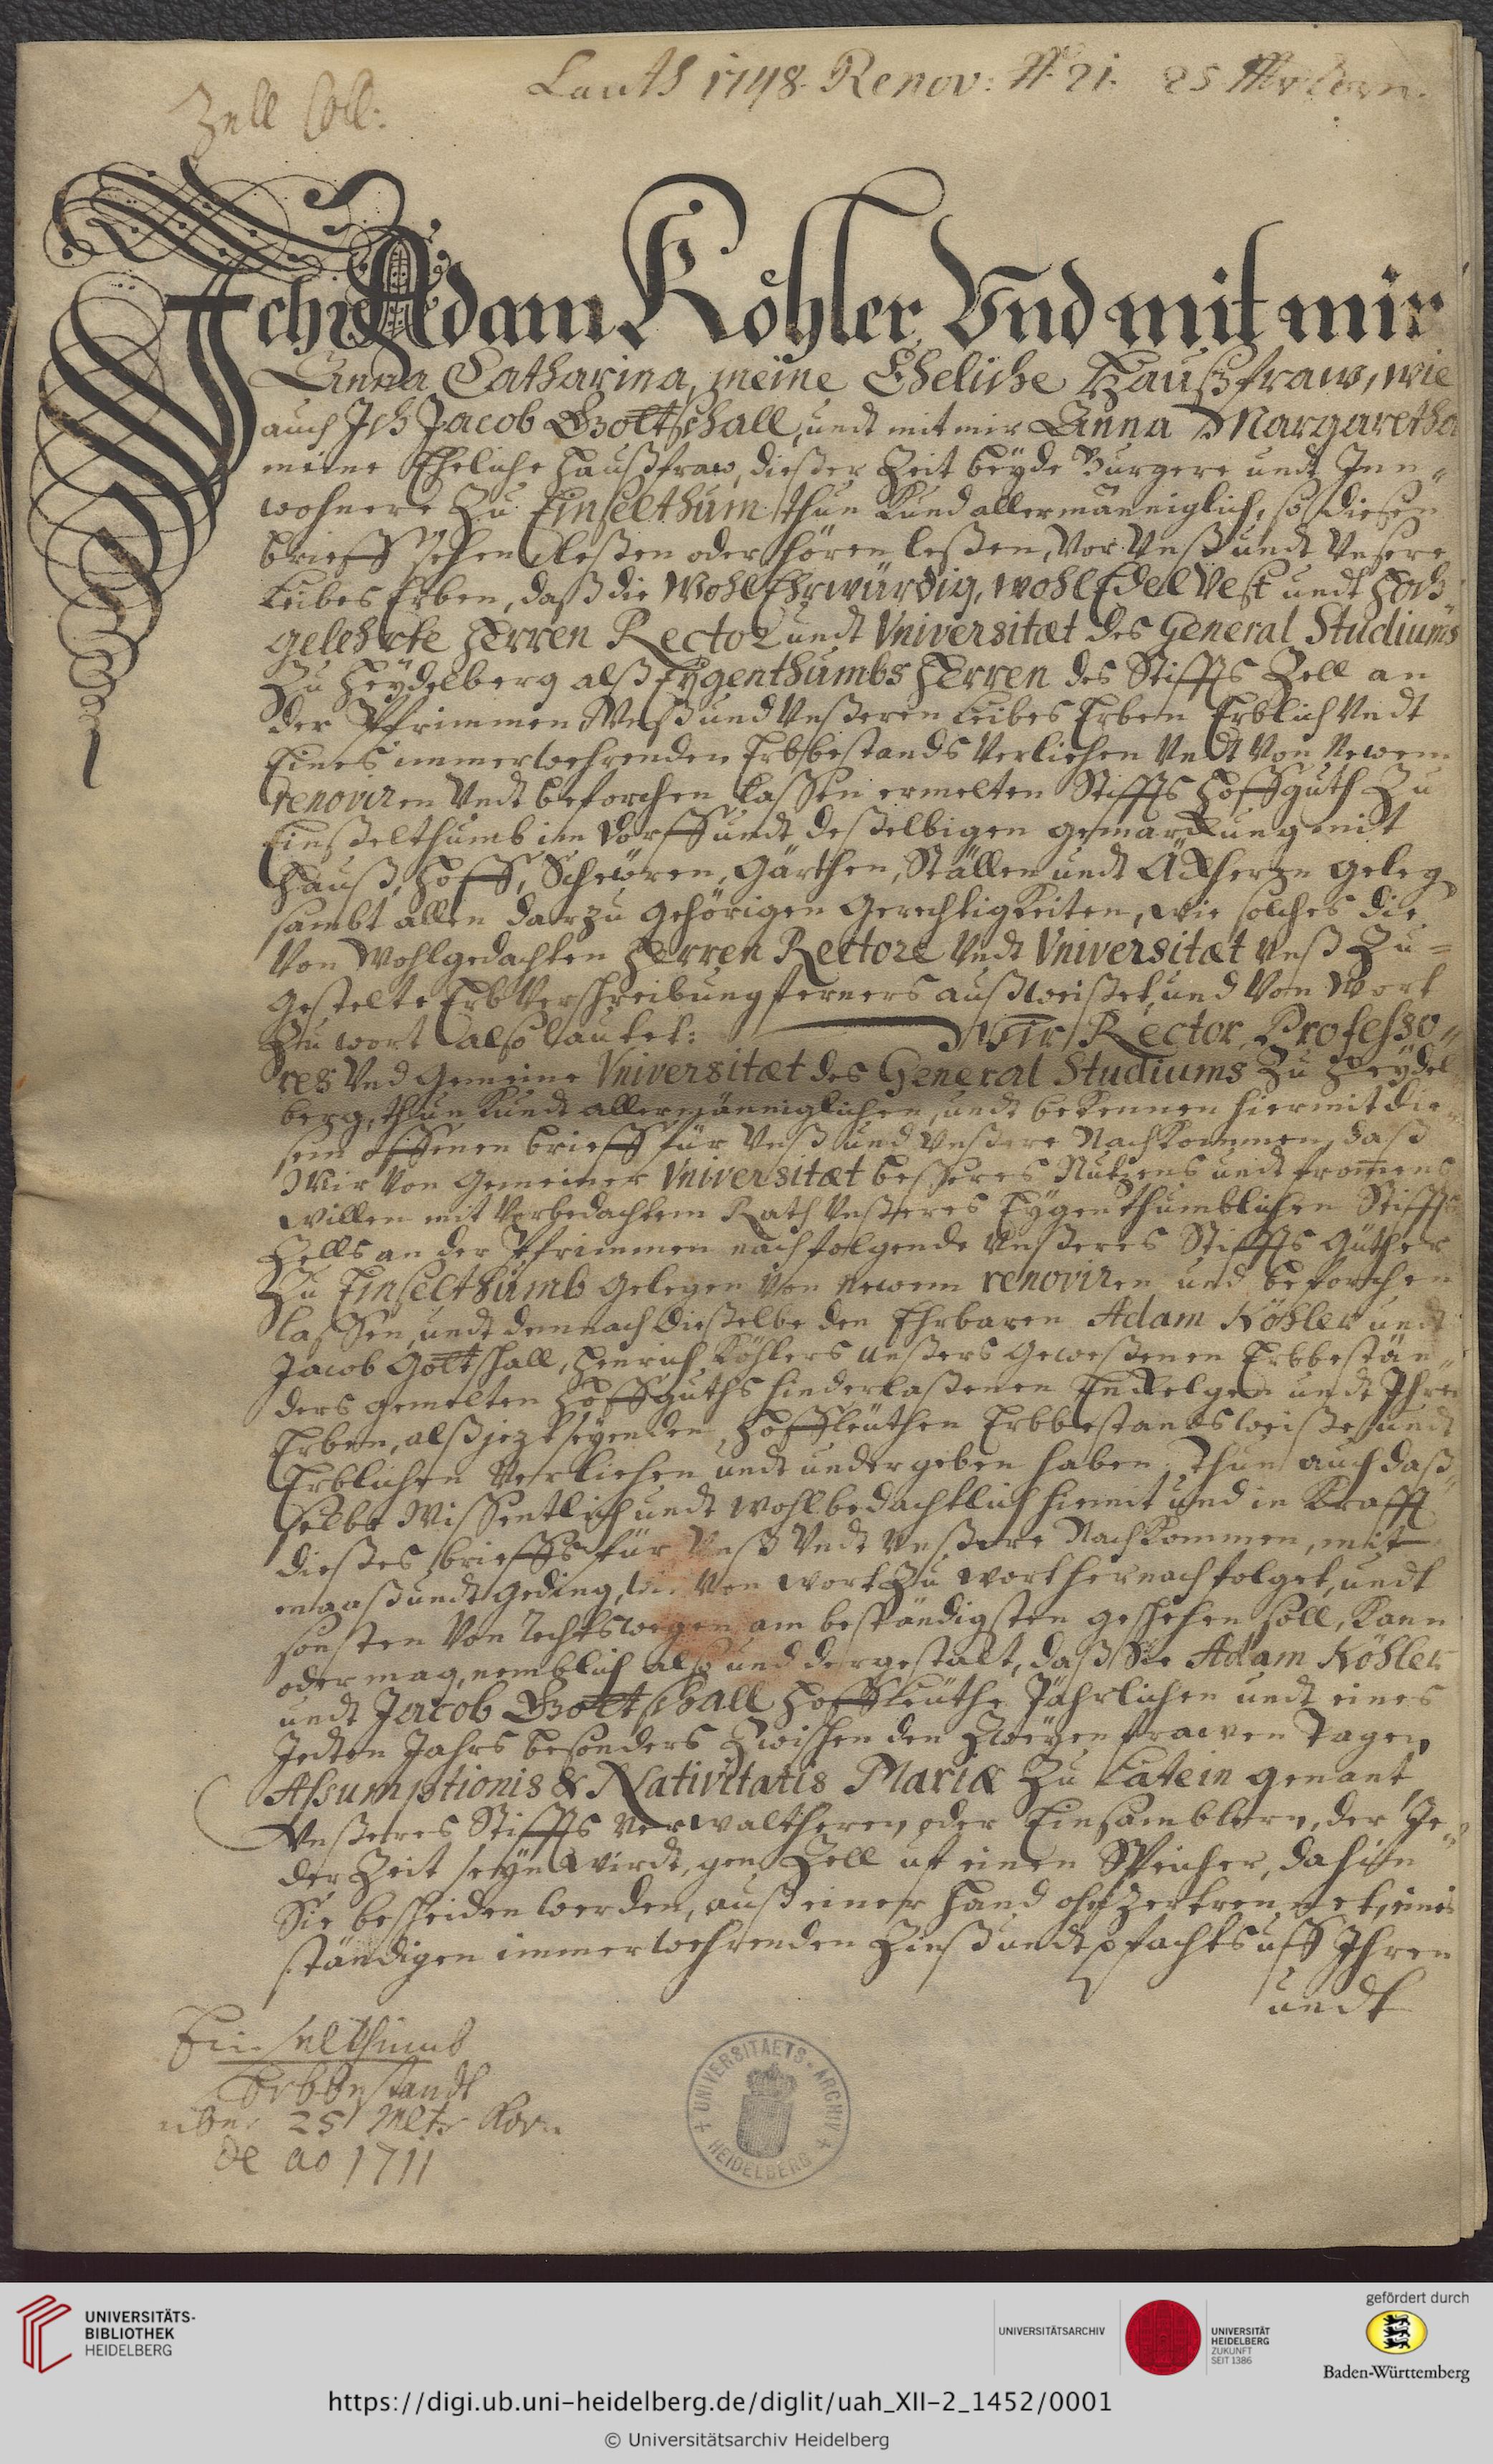 Lauth 1748. Renov: No 21. 25 Mltr Korn.
Zell Coll:
Ich Adam Köhler Vnd mit mir
Anna Catharina, meine Eheliche Haußfraw, wie
auch Ich Jacob Gottschall, undt mit mir Anna Margaretha
meine Eheliche Haußfraw, dießer Zeit beyde Burgere undt Inn-
wohnere Zu Einselthum thun Kund allermänniglich, so dießen
brieff sehen leßen oder hören leßen, Vor Unß undt Unsere
Leibes Erben, daß die Wohl Ehrwürdig, wohl Edel Vest undt Hoch
gelehrte Herren Rector undt Vniversitæt des General Studiums
Zu Heydelberg alß Eygenthumbs Herren des Stiffts Zell an
der Pfrimmen Unß und Unßeren Leibes Erben Erblich Undt
Eines immerwehrenden Erbbestands Verliehen Undt Von Newem
renoviren Undt beforchen lassen ermelten Stiffts Hoffguth Zu
Einßelthumb im Dorff undt deßelbigen gemarckung mit
Hauß, Hoff, Scheüren, Gärthen, Ställen undt Äckhern geleg
sambt allen darzu gehörigen Gerechtigkeiten, wie solches die
Von Wohlgedachten Herren Rectore Undt Vniversitæt Unß Zu=
gestelte Erb Verschreibung ferners außweißet, und Von Wort
Zu wort also lautet: Wir Rector, Professo-
res Und Gemeine Vniversitæt des General Studiums Zu Heydel
berg, thun Kundt allermänniglichen, undt bekennen hiermit die-
sem offenen brieff für Unß und Unßere Nachkommen, daß
Wir Von Gemeiner Vniversitæt besseres Nutzens undt frommens
willen mit Vorbedachtem Rath Unßeres Eygenthumblichen Stiffts
Zells an der Pfrimmen nachfolgende Unßeres Stiffts Güther
Zu Einselthumb gelegen Von Newem renoviren und beforchen
lassen, undt demnach dießelbe den Ehrbaren Adam Köhler undt
Jacob Gottschall, Henrich Köhlers unßers geweßenen Erbbestän-
ders gemelten Hoffguths hinderlaßenen Enckelgen undt Ihren
Erben, alß jezt seyenden Hoffleüthen Erbbestandsweiße undt
Erblichen Verliehen undt undergeben haben, Thun auch daß
selbe Wissentlich undt wohlbedächtlich hiemit und in Krafft
dießes brieffs für Unß Undt Unßere Nachkommen, mit
maaß undt geding, wie Von wort Zu wort hernach folget, undt
sonsten Von Rechtswegen am bestständigsten geschehen soll, Kann
oder mag, nemblich also und dergestalt, daß Sie Adam Köhler
undt Jacob Gottschall Hoffleüthe Jährlichen undt eines
Jedten Jahrs besonders Zwischen den Zweyen frawen Tagen
Assumptionis & Nativitatis Mariæ Zu Latein genant,
Unßeres Stiffts Verwaltheren, oder Einsamblern, der Je-
der Zeit seyn Wirdt, gen Zell uf einen Speicher, dahin
Sie bescheiden werden, auß einer Hand ohnzertrennet, eines
ständigen immerwehrenden Zinß undt pfachts uff Ihren
undt
Einselthumb
Erbbestandt
über 25 Mltr Korn
de ao 1711
UNIVERSITAETS-ARCHIV
HEIDELBERG
UNIVERSITÄTS-
BIBLIOTHEK
HEIDELBERG
UNIVERSITÄTSARCHIV
UNIVERSITÄT
HEIDELBERG
ZUKUNFT
SEIT 1386
gefördert durch
Baden-Württemberg
https://digi.ub.uni-heidelberg.de/diglit/uah_XII-2_1452/0001
© Universitätsarchiv Heidelberg